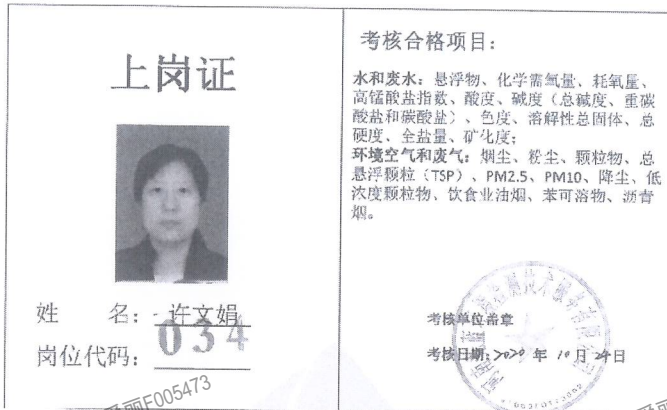 上岗证
姓 名: 许文娟
岗位代码: 034
考核合格项目:
水和废水: 悬浮物、化学需氧量、耗氧量、
高锰酸盐指数、酸度、碱度（总碱度、重碳
酸盐和碳酸盐）、色度、溶解性总固体、总
硬度、全盐量、矿化度;
环境空气和废气: 烟尘、粉尘、颗粒物、总
悬浮颗粒（TSP）、PM2.5、PM10、降尘、低
浓度颗粒物、饮食业油烟、苯可溶物、沥青
烟。
考核单位盖章
考核日期: 2020 年 10 月 24 日
F005473